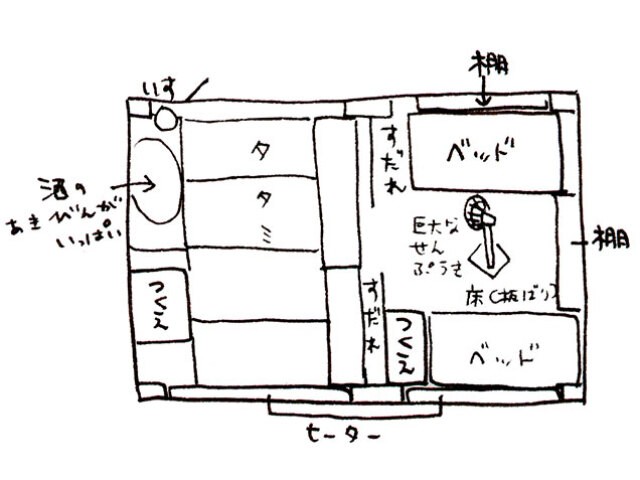 棚
いす
すだれ
ベッド
タタミ
酒の
あきびんが
いっぱい
巨大な
せん
ぷうき
棚
床(板ばり)
つくえ
すだれ
つくえ
ベッド
ヒーター